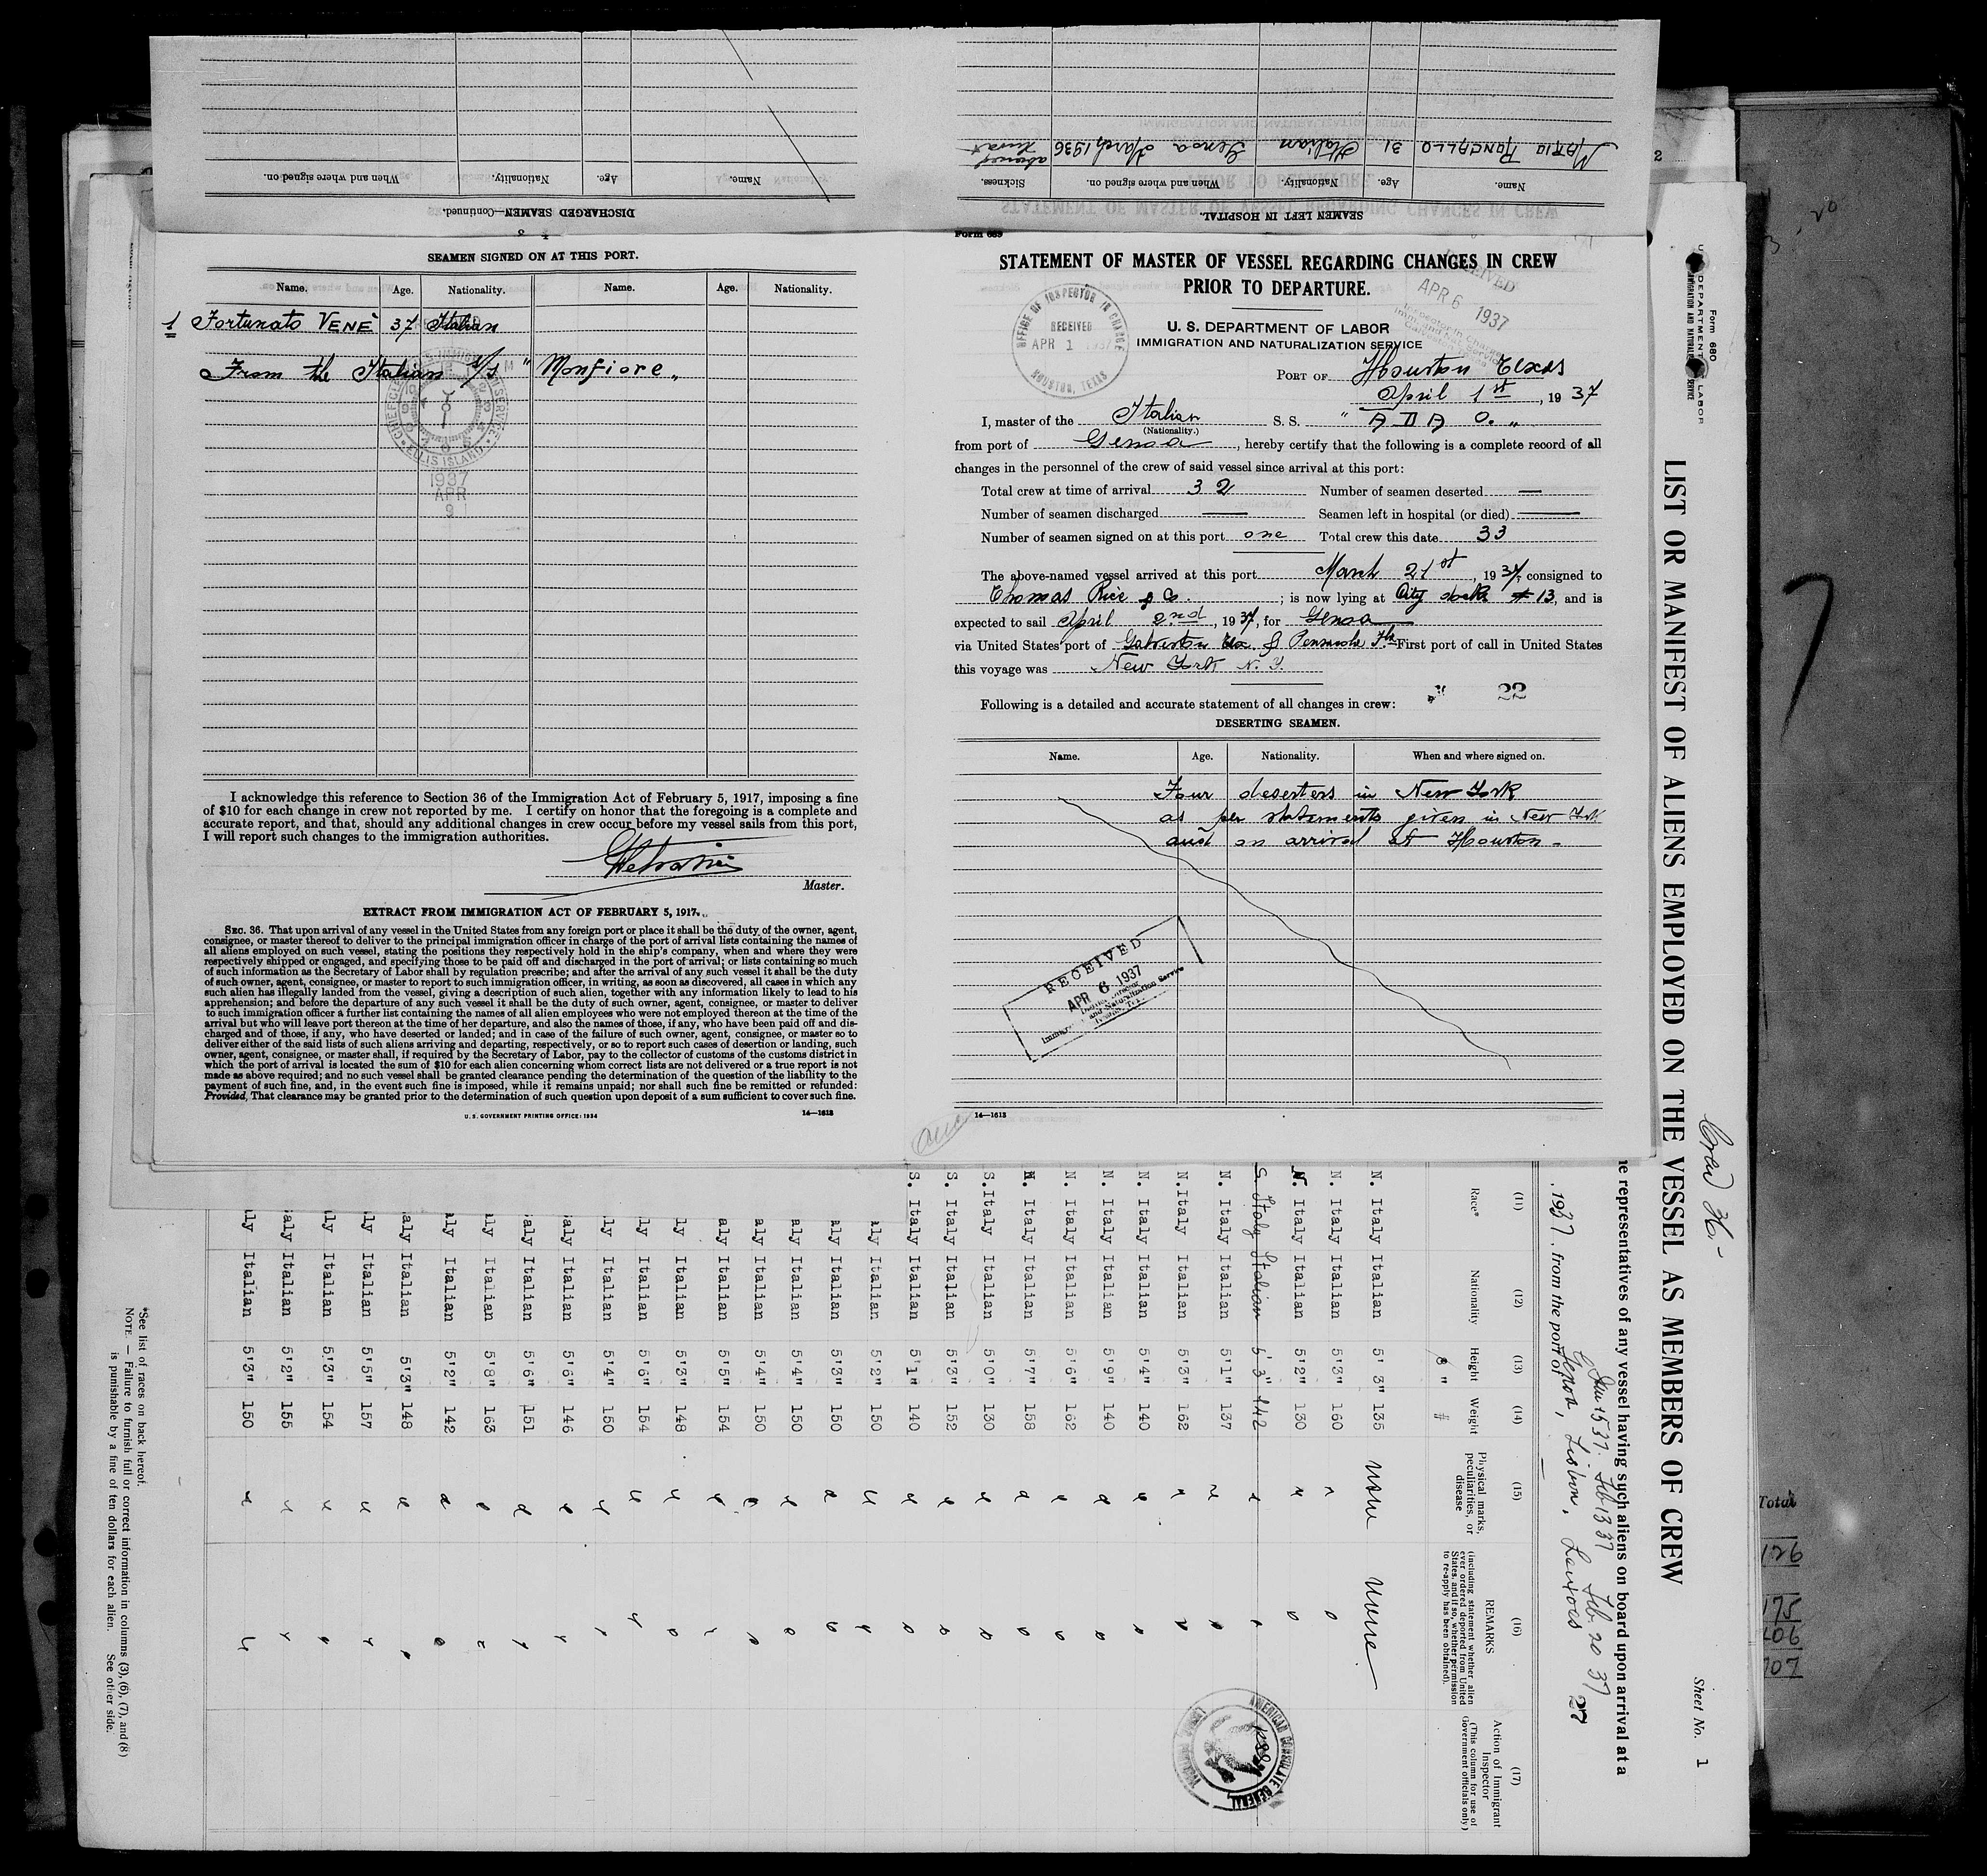 SEAMEN LEFT IN HOSPITAL.
Name. Age. Nationality. When and where signed on. Sickness.
MARIO RONCALLO 31 Italian Genoa March 1936
DISCHARGED SEAMEN—Continued.
Name. Age. Nationality. When and where signed on.
SEAMEN SIGNED ON AT THIS PORT.
Name. Age. Nationality. Name. Age. Nationality.
1 Fortunato VENÈ 37 Italian
From the Italian S/S "Monfiore"
ELLIS ISLAND
1937
APR
9
I acknowledge this reference to Section 36 of the Immigration Act of February 5, 1917, imposing a fine
of $10 for each change in crew not reported by me. I certify on honor that the foregoing is a complete and
accurate report, and that, should any additional changes in crew occur before my vessel sails from this port,
I will report such changes to the immigration authorities.
Master.
EXTRACT FROM IMMIGRATION ACT OF FEBRUARY 5, 1917.
SEC. 36. That upon arrival of any vessel in the United States from any foreign port or place it shall be the duty of the owner, agent,
consignee, or master thereof to deliver to the principal immigration officer in charge of the port of arrival lists containing the names of
all aliens employed on such vessel, stating the positions they respectively hold in the ship's company, when and where they were
respectively shipped or engaged, and specifying those to be paid off and discharged in the port of arrival; or lists containing so much
of such information as the Secretary of Labor shall by regulation prescribe; and after the arrival of any such vessel it shall be the duty
of such owner, agent, consignee, or master to report to such immigration officer, in writing, as soon as discovered, all cases in which any
such alien has illegally landed from the vessel, giving a description of such alien, together with any information likely to lead to his
apprehension; and before the departure of any such vessel it shall be the duty of such owner, agent, consignee, or master to deliver
to such immigration officer a further list containing the names of all alien employees who were not employed thereon at the time of the
arrival but who will leave port thereon at the time of her departure, and also the names of those, if any, who have been paid off and dis-
charged and of those, if any, who have deserted or landed; and in case of the failure of such owner, agent, consignee, or master so to
deliver either of the said lists of such aliens arriving and departing, respectively, or so to report such cases of desertion or landing, such
owner, agent, consignee, or master shall, if required by the Secretary of Labor, pay to the collector of customs of the customs district in
which the port of arrival is located the sum of $10 for each alien concerning whom correct lists are not delivered or a true report is not
made as above required; and no such vessel shall be granted clearance pending the determination of the question of the liability to the
payment of such fine, and, in the event such fine is imposed, while it remains unpaid; nor shall such fine be remitted or refunded:
Provided, That clearance may be granted prior to the determination of such question upon deposit of a sum sufficient to cover such fine.
U.S. GOVERNMENT PRINTING OFFICE: 1934 14—1613
Form 689
STATEMENT OF MASTER OF VESSEL REGARDING CHANGES IN CREW
PRIOR TO DEPARTURE.
OFFICE OF INSPECTOR IN CHARGE
RECEIVED
APR 1 1937
HOUSTON, TEXAS
RECEIVED
APR 6 1937
U. S. DEPARTMENT OF LABOR
IMMIGRATION AND NATURALIZATION SERVICE
PORT OF Houston Texas
April 1st, 1937
I, master of the Italian S. S. "ADA O."
(Nationality.)
from port of Genoa, hereby certify that the following is a complete record of all
changes in the personnel of the crew of said vessel since arrival at this port:
Total crew at time of arrival 32 Number of seamen deserted —
Number of seamen discharged — Seamen left in hospital (or died) —
Number of seamen signed on at this port one Total crew this date 33
The above-named vessel arrived at this port March 21st, 1937, consigned to
Thomas Rice & Co. ; is now lying at City dock # 13, and is
expected to sail April 2nd, 1937, for Genoa
via United States port of Galveston & First port of call in United States
this voyage was New York N. Y.
22
Following is a detailed and accurate statement of all changes in crew:
DESERTING SEAMEN.
Name. Age. Nationality. When and where signed on.
Four deserters in New York
as per statements given in New York
and on arrival at Houston.
RECEIVED
APR 6 1937
14—1613
Form 680
U. S. DEPARTMENT OF LABOR
IMMIGRATION AND NATURALIZATION SERVICE
LIST OR MANIFEST OF ALIENS EMPLOYED ON THE VESSEL AS MEMBERS OF CREW
Sheet No. 1
representatives of any vessel having such aliens on board upon arrival at a
Jan 15 37. Feb 13 37 Feb. 20 37
, 1937, from the port of Genoa, Lisbon,
27
(11) (12) (13) (14) (15) (16) (17)
Race* Nationality Height Weight Physical marks, peculiarities, or disease REMARKS (including statement whether alien ever ordered deported from United States, and if so, whether permission to re-apply has been obtained). Action of Immigrant Inspector (This column for use of Government officials only)
N. Italy Italian 5' 3" 135 none none
N. Italy Italian 5'3" 160
N. Italy Italian 5'2" 130
S. Italy Italian 5'3" 142
N. Italy Italian 5'1" 137
N.Italy Italian 5'3" 162
N. Italy Italian 5'4" 140
N. Italy Italian 5'9" 140
N. Italy Italian 5'6" 162
N. Italy Italian 5'7" 158
S.Italy Italian 5'0" 130
S. Italy Italian 5'3" 152
S. Italy Italian 5'1" 140
aly Italian 5'2" 150
aly Italian 5'3" 150
aly Italian 5'4" 150
aly Italian 5'4" 150
aly Italian 5'5" 154
ly Italian 5'3" 148
ly Italian 5'6" 154
ly Italian 5'4" 150
aly Italian 5'6" 146
aly Italian 5'6" 151
ly Italian 5'8" 163
aly Italian 5'2" 142
aly Italian 5'3" 148
ly Italian 5'5" 157
aly Italian 5'3" 154
aly Italian 5'2" 155
ly Italian 5'3" 150
AMERICAN CONSULATE GENERAL
*See list of races on back hereof.
NOTE. — Failure to furnish full or correct information in columns (3), (6), (7), and (8)
is punishable by a fine of ten dollars for each alien. See other side.
Total
126
175
406
707